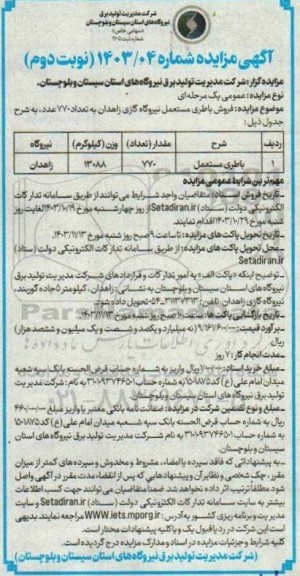 شرکت مدیریت تولید برق
نیروگاه‌های استان سیستان و بلوچستان
(سهامی خاص)
آگهی مزایده شماره ۱۴۰۳/۰۴ (نوبت دوم)
مزایده گزار: شرکت مدیریت تولید برق نیروگاه‌های استان سیستان و بلوچستان.
نوع مزایده: عمومی یک مرحله‌ای
موضوع مزایده: فروش باطری مستعمل نیروگاه گازی زاهدان به تعداد ۷۷۰ عدد، به شرح
جدول ذیل:
ردیف شرح مقدار (تعداد) وزن (کیلوگرم) نیروگاه
۱ باطری مستعمل ۷۷۰ ۱۳۰۸۸ زاهدان
مهم‌ترین شرایط عمومی مزایده
ـ تاریخ فروش اسناد: متقاضیان واجد شرایط می‌توانند از طریق سامانه تدارکات
الکترونیکی دولت (ستاد) Setadiran.ir از روز چهارشنبه مورخ ۱۴۰۳/۱۰/۱۹ لغایت روز
شنبه مورخ ۱۴۰۳/۱۰/۲۹ اقدام نمایند.
ـ تاریخ تحویل پاکت‌های مزایده: تا ساعت ۹ صبح روز شنبه مورخ ۱۴۰۳/۱۱/۱۳.
ـ محل تحویل پاکت‌های مزایده: از طریق سامانه تدارکات الکترونیکی دولت (ستاد)
Setadiran.ir
ـ توضیح اینکه «پاکت الف» به امور تدارکات و قراردادهای شرکت مدیریت تولید برق
نیروگاه‌های استان سیستان و بلوچستان به نشانی: زاهدان، کیلومتر ۵ جاده کوربند،
نیروگاه گازی زاهدان تلفن: ۳۱۱۳۷۳۱۳-۰۵۴ تحویل داده شود.
ـ تاریخ بازگشایی پاکت‌ها: ساعت ۱۰ صبح روز شنبه مورخ ۱۴۰۳/۱۱/۱۳.
ـ برآورد قیمت: (نه میلیارد و یکصد و شصت و یک میلیون و ششصد هزار)
ریال
ـ مدت انجام کار: ۷ روز
ـ مبلغ خرید اسناد: ریال واریز به شماره حساب قرض‌الحسنه بانک سپه شعبه
میدان امام علی (ع) کد ۱۵۰۱۸۷۵ به شماره حساب ۳۱۰۱۰۹۳۷۴۶۵۰۱ به نام: شرکت مدیریت
تولید برق نیروگاه‌های استان سیستان و بلوچستان.
ـ مبلغ و نوع تضمین شرکت در مزایده: ضمانت نامه بانکی معتبر یا واریز مبلغ ۴۶۰/۰۰۰/۰۰۰
ریال به شماره حساب قرض‌الحسنه بانک سپه شعبه میدان امام علی (ع) کد ۱۵۰۱۸۷۵
به شماره حساب ۳۱۰۱۰۹۳۷۴۶۵۰۱ به نام شرکت مدیریت تولید برق نیروگاه‌های استان
سیستان و بلوچستان.
ـ به پیشنهاداتی که فاقد سپرده یا امضاء، مشروط و مخدوش و سپرده‌های کمتر از میزان
مقرر، چک شخصی و نظایر آن و پیشنهادهایی که پس از انقضاء مدت مقرر در آگهی واصل
شود مطلقا ترتیب اثر داده نخواهد شد. ضمنا متقاضیان می‌توانند جهت کسب اطلاعات
بیشتر به سایت سامانه تدارکات الکترونیکی دولت (ستاد) Setadiran.ir و سایت
مدیریت و برنامه‌ریزی کشور به آدرس: www.iets.mporg.ir مراجعه نمایند. بدیهی
است این شرکت در رد یا قبول یک و یا کلیه پیشنهادات مختار است.
کلیه شرایط و جزئیات مزایده در اسناد و مدارک مزایده درج گردیده است.
(شرکت مدیریت تولید برق نیروگاه‌های استان سیستان و بلوچستان)